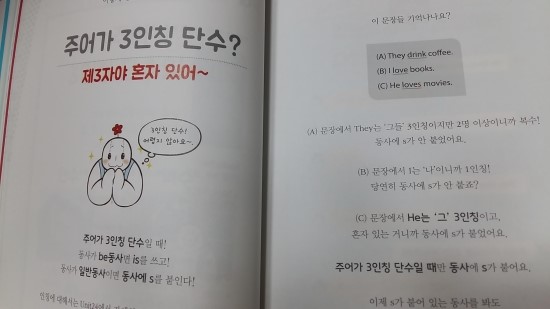 주어가 3인칭 단수?
제3자야 혼자 있어~
3인칭 단수!
어렵지 않아요~.
주어가 3인칭 단수일 때!
동사가 be동사면 is를 쓰고!
동사가 일반동사이면 동사에 s를 붙인다!
인칭에 대해서는 Unit24에서
이 문장들 기억나나요?
(A) They drink coffee.
(B) I love books.
(C) He loves movies.
(A) 문장에서 They는 '그들' 3인칭이지만 2명 이상이니까 복수!
동사에 s가 안 붙었어요.
(B) 문장에서 I는 '나'이니까 1인칭!
당연히 동사에 s가 안 붙죠?
(C) 문장에서 He는 '그' 3인칭이고,
혼자 있는 거니까 동사에 s가 붙었어요.
주어가 3인칭 단수일 때만 동사에 s가 붙어요.
이제 s가 붙어 있는 동사를 봐도